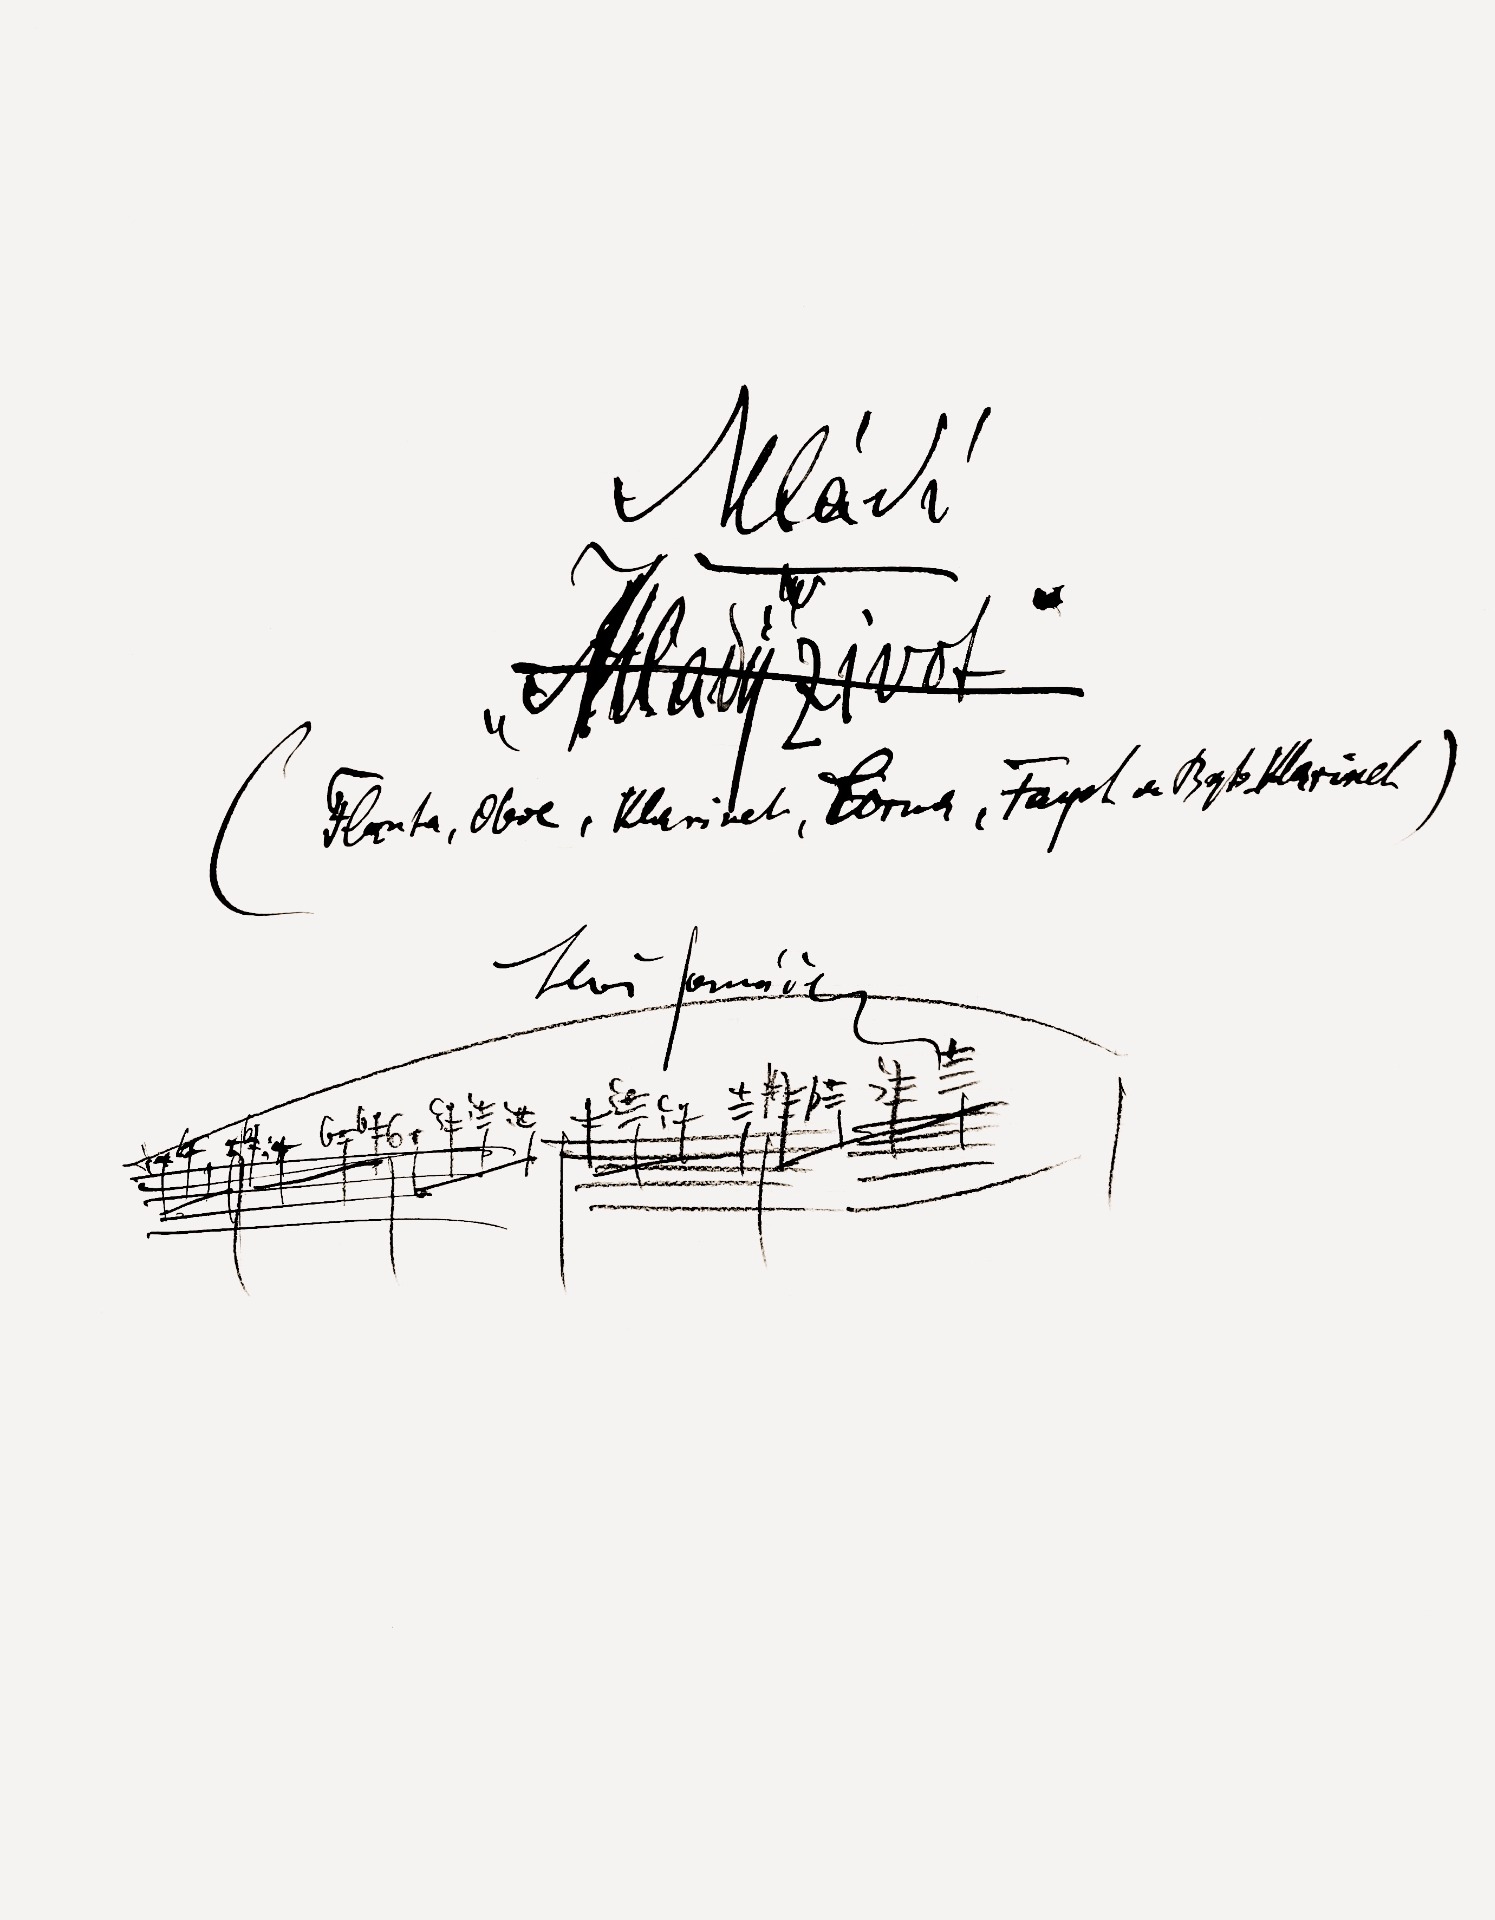 Mládí
„Mladý život“
(Flauta, Oboe, Klarinet, Corno, Fagot a Bas. Klarinet)
Leoš Janáček